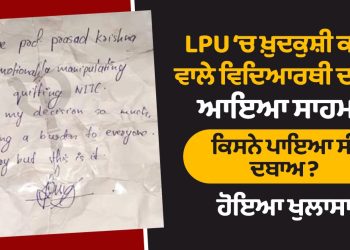 prof prasad krishna
manipulating
quitting NITC.
my decision so much,
a burden to everyone.
but this is it.
LPU 'ਚ ਖ਼ੁਦਕੁਸ਼ੀ ਕ
ਵਾਲੇ ਵਿਦਿਆਰਥੀ ਦ
ਆਇਆ ਸਾਹਮ
ਕਿਸਨੇ ਪਾਇਆ ਸੀ
ਦਬਾਅ ?
ਹੋਇਆ ਖੁਲਾਸਾ